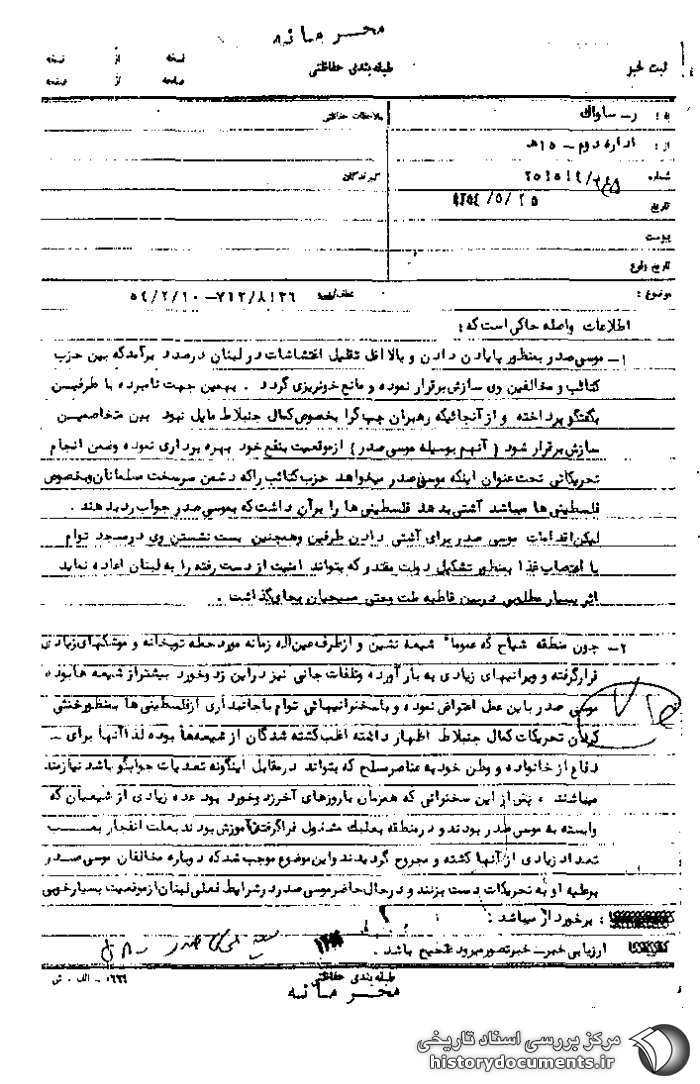 محرمانه
ثبت خبر
طبقه‌بندی حفاظتی
نسخه از نسخه
صفحه از صفحه
به : ر ــ ساواک
ملاحظات حفاظتی
از : اداره دوم ــ ۱۵هـ
شماره
گیرندگان
تاریخ
پیوست
تاریخ وقوع
موضوع : عطف/پیرو ۷۱۲/۸۱۳۶ــ ۵۴/۲/۱۰
اطلاعات واصله حاکی است که :
۱ــ موسی صدر بمنظور پایان دادن و یا لااقل تقلیل اغتشاشات در لبنان درصدد برآمد که بین حزب
کتائب و مخالفین وی سازش برقرار نموده و مانع خونریزی گردد . بهمین جهت نامبرده با طرفین
بگفتگو پرداخته و از آنجائیکه رهبران چپ گرا بخصوص کمال جنبلاط مایل نبود بین متخاصمین
سازش برقرار شود ( آنهم بوسیله موسی صدر ) از موقعیت بنفع خود بهره برداری نموده وضمن انجام
تحریکاتی تحت عنوان اینکه موسی صدر میخواهد حزب کتائب راکه دشمن سرسخت مسلمانان وبخصوص
فلسطینی ها میباشد آشتی بدهد فلسطینی ها را برآن داشت که بموسی صدر جواب رد بدهند .
لیکن اقدامات موسی صدر برای آشتی دادن طرفین وهمچنین بست نشستن وی درمسجد توام
با اعتصاب غذا بمنظور تشکیل دولت مقتدر که بتواند امنیت از دست رفته را به لبنان اعاده نماید
اثر بسیار مطلوبی دربین قاطبه ملت وحتی مسیحیان بجای گذاشت .
۲ــ چون منطقه شیاح که عموما" شیعه نشین و ازطرف عین‌اله زمانه مورد حمله توپخانه و موشکهای زیادی
قرارگرفته و ویرانیهای زیادی به بار آورده وتلفات جانی نیز دراین زد وخورد بیشتر از شیعه هابوده
موسی صدر باین عمل اعتراض نموده و باسخنرانیهائی توام باجانبداری ازفلسطینی ها بمنظور خنثی
کردن تحریکات کمال جنبلاط اظهار داشته اغلب کشته شدگان از شیعه‌ها بوده لذا آنها برای ــ
دفاع از خانواده و وطن خود به عناصر مسلح که بتواند درمقابل اینگونه تعدیات جوابگو باشد نیازمند
میباشند . پس از این سخنرانی که همزمان باروزهای آخر زد وخورد بود عده زیادی از شیعیان که
وابسته به موسی صدر بودند و درمنطقه بعلبک مشغول فراگرفتن آموزش بودند بعلت انفجار بمب
تعداد زیادی از آنها کشته و مجروح گردیدند واین موضوع موجب شد که دوباره مخالفان موسی صدر
برعلیه او به تحریکات دست بزنند و درحال حاضر موسی صدر در شرایط فعلی لبنان از موقعیت بسیار خوبی
برخوردار میباشد .
ارزیابی خبر ــ خبر تصور میرود صحیح باشد .
طبقه بندی حفاظتی
محرمانه
مرکز بررسی اسناد تاریخی
historydocuments.ir